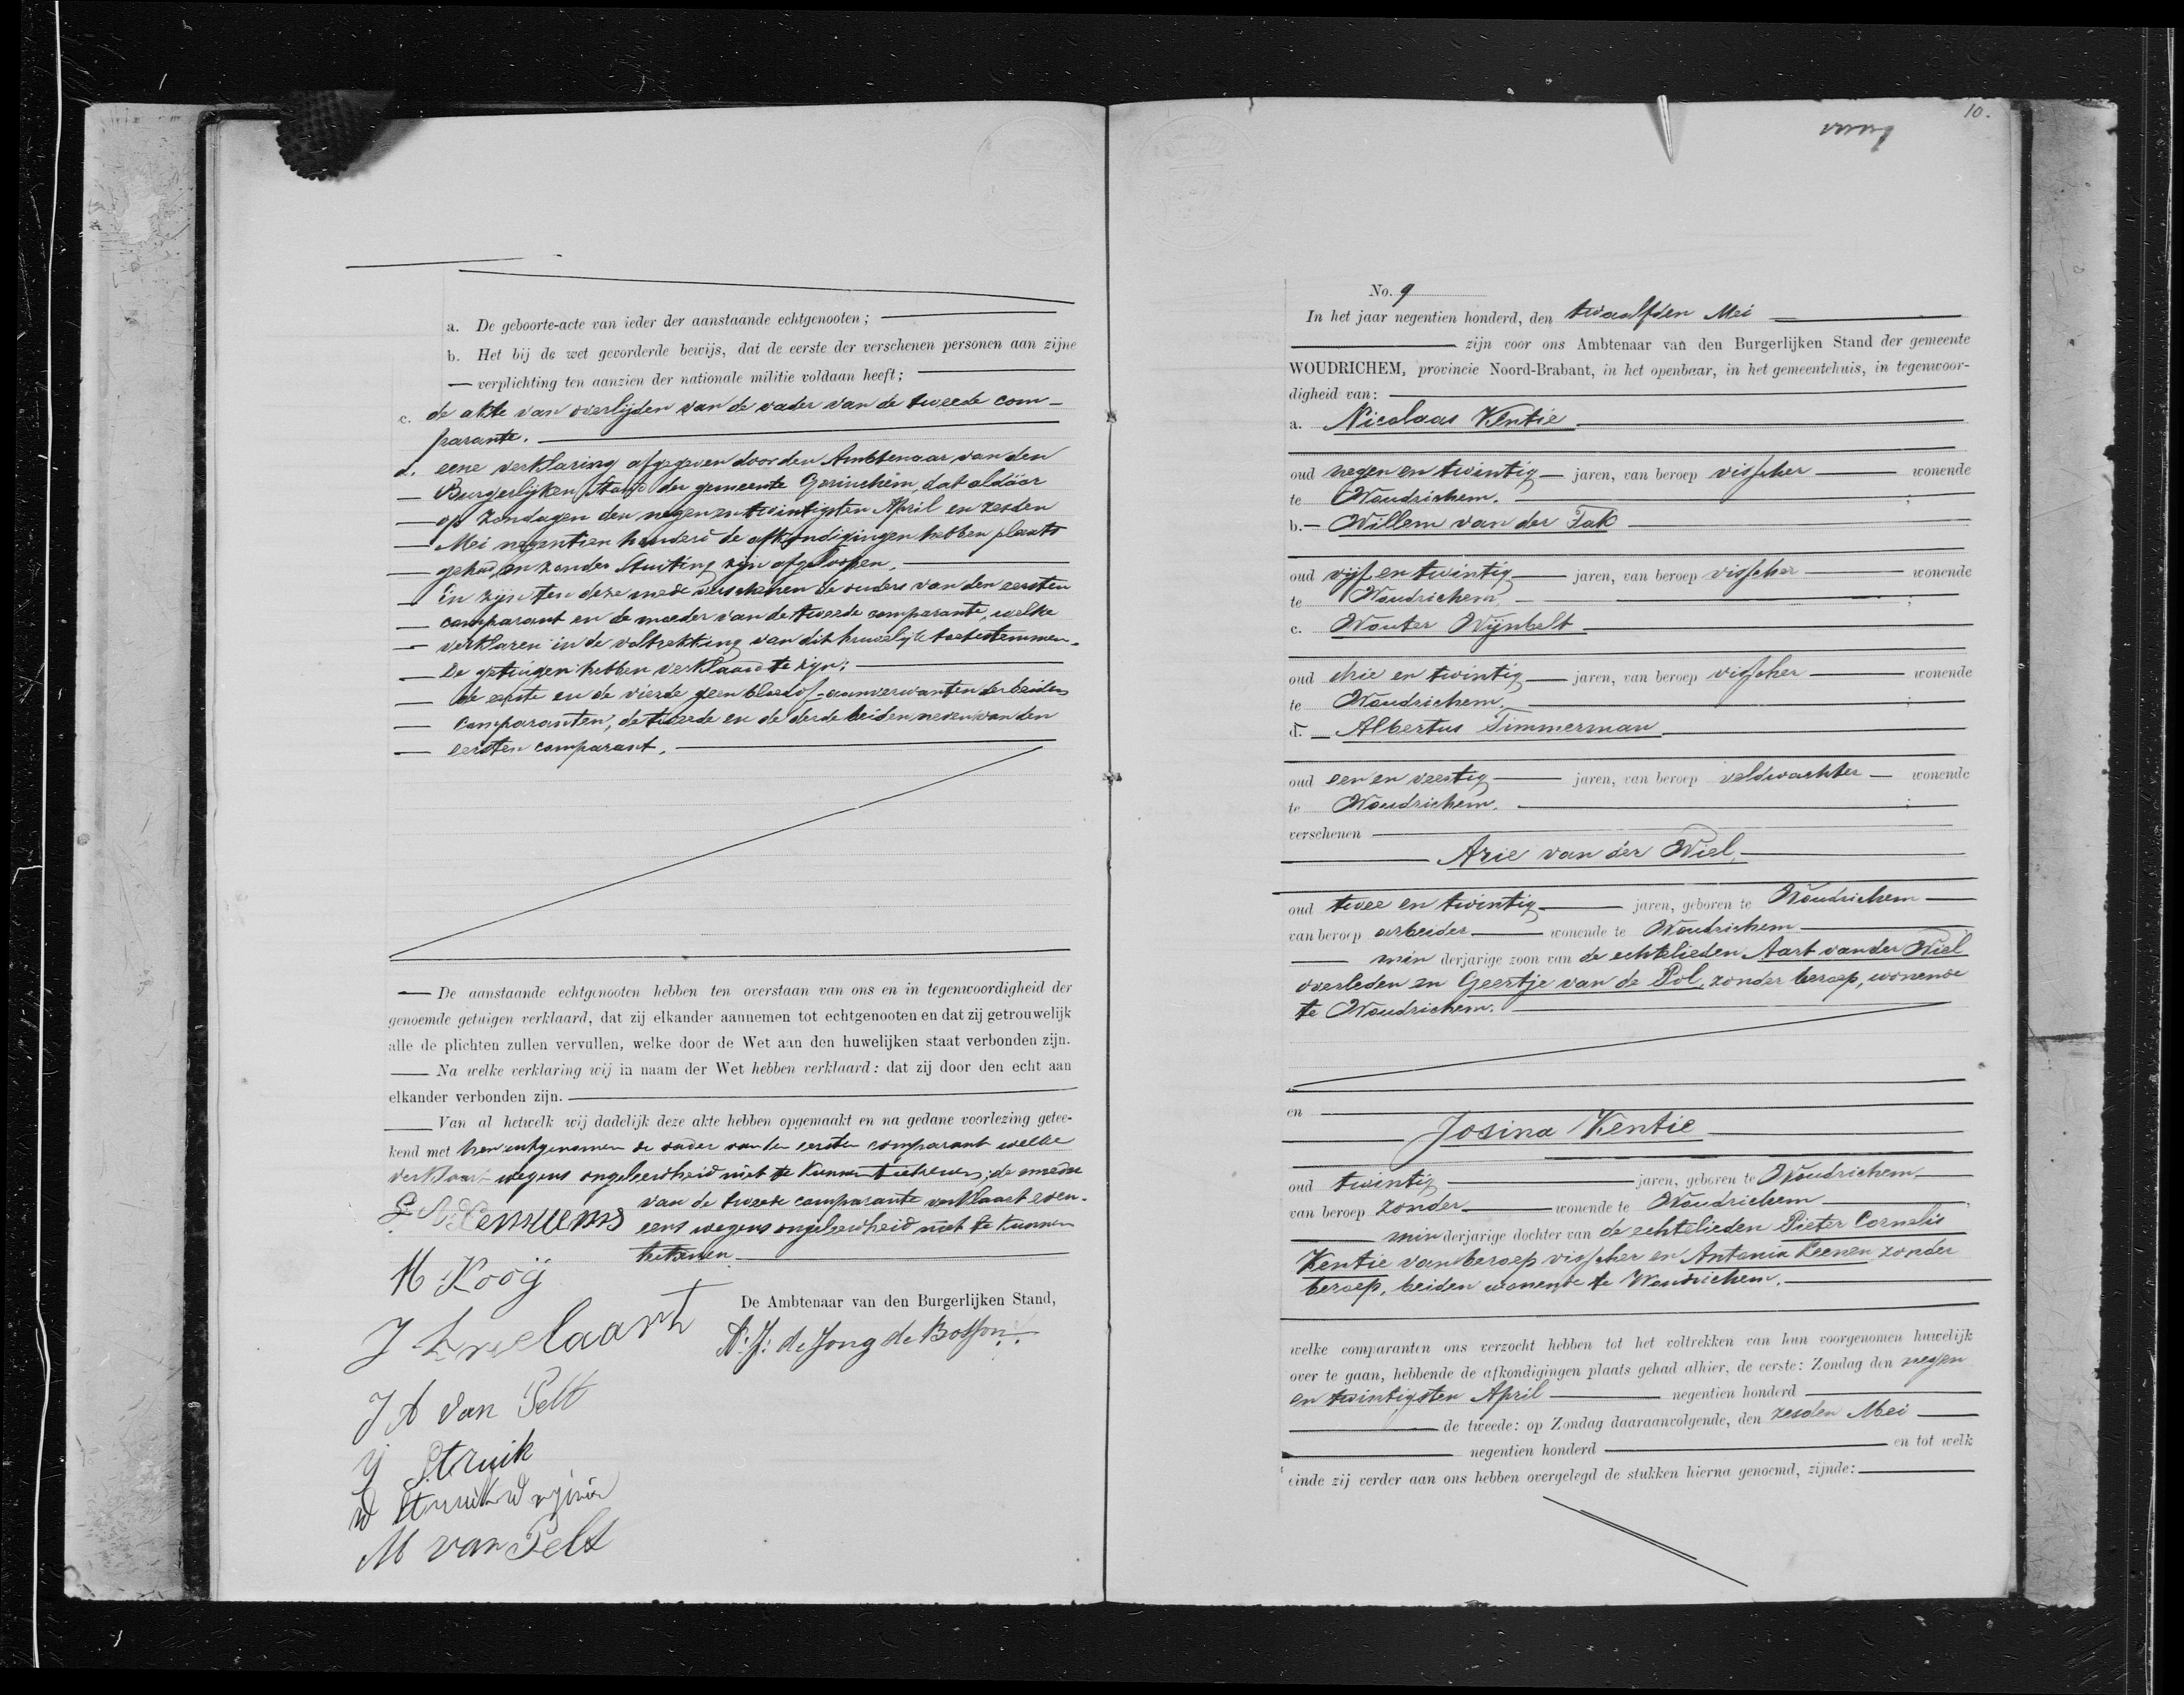 a. De geboorte-acte van ieder der aanstaande echtgenooten;
b. Het bij de wet gevorderde bewijs, dat de eerste der verschenen personen aan zijne
verplichting ten aanzien der nationale militie voldaan heeft;
c. de akte van overlijden van de vader van de tweede com-
parante.
d. eene verklaring afgegeven door den Ambtenaar van den
Burgerlijken Stand der gemeente Gorinchem, dat aldaar
op Zondagen den negen en twintigsten April en zesden
Mei negentien honderd de afkondigingen hebben plaats
gehad en zonder stuiting zijn afgeloopen.
En zijn ten deze mede verschenen de ouders van den eersten
comparant en de moeder van de tweede comparante, welke
verklaren in de voltrekking van dit huwelijk toetestemmen.
De getuigen hebben verklaard te zijn:
de eerste en de vierde geen bloed of aanverwanten der beiden
comparanten, de tweede en de derde beiden neven van den
eersten comparant.
De aanstaande echtgenooten hebben ten overstaan van ons en in tegenwoordigheid der
genoemde getuigen verklaard, dat zij elkander aannemen tot echtgenooten en dat zij getrouwelijk
alle de plichten zullen vervullen, welke door de Wet aan den huwelijken staat verbonden zijn.
Na welke verklaring wij in naam der Wet hebben verklaard: dat zij door den echt aan
elkander verbonden zijn.
Van al hetwelk wij dadelijk deze akte hebben opgemaakt en na gedane voorlezing getee-
kend met hen uitgenomen de vader van den eersten comparant welke
verklaart wegens ongeleerdheid niet te kunnen teekenen; de moeder
van de tweede comparante verklaart even-
eens wegens ongeleerdheid niet te kunnen
teekenen
M Kooij
De Ambtenaar van den Burgerlijken Stand,
de Jong de Bosson
J A van Pelt
Struik
M van Pelt
10.
No. 9
In het jaar negentien honderd, den twaalfden Mei
zijn voor ons Ambtenaar van den Burgerlijken Stand der gemeente
WOUDRICHEM, provincie Noord-Brabant, in het openbaar, in het gemeentehuis, in tegenwoor-
digheid van:
a. Nicolaas Kentie
oud negen en twintig jaren, van beroep visscher wonende
te Woudrichem. ;
b. Willem van der Tak
oud vijf en twintig jaren, van beroep visscher wonende
te Woudrichem. ;
c. Wouter Wijnbelt
oud drie en twintig jaren, van beroep visscher wonende
te Woudrichem. ;
d. Albertus Timmerman
oud een en veertig jaren, van beroep veldwachter wonende
te Woudrichem. ;
verschenen
Arie van der Wiel,
oud twee en twintig jaren, geboren te Woudrichem
van beroep arbeider wonende te Woudrichem
minderjarige zoon van de echtelieden Aart van der Wiel
overleden en Geertje van de Pol, zonder beroep, wonende
te Woudrichem.
en
Josina Kentie
oud twintig jaren, geboren te Woudrichem
van beroep zonder wonende te Woudrichem
minderjarige dochter van de echtelieden Pieter Cornelis
Kentie van beroep visscher en Antonia Leenen zonder
beroep, beiden wonende te Woudrichem.
welke comparanten ons verzocht hebben tot het voltrekken van hun voorgenomen huwelijk
over te gaan, hebbende de afkondigingen plaats gehad alhier, de eerste: Zondag den negen
en twintigsten April negentien honderd
de tweede: op Zondag daaraanvolgende, den zesden Mei
negentien honderd en tot welk
einde zij verder aan ons hebben overgelegd de stukken hierna genoemd, zijnde: